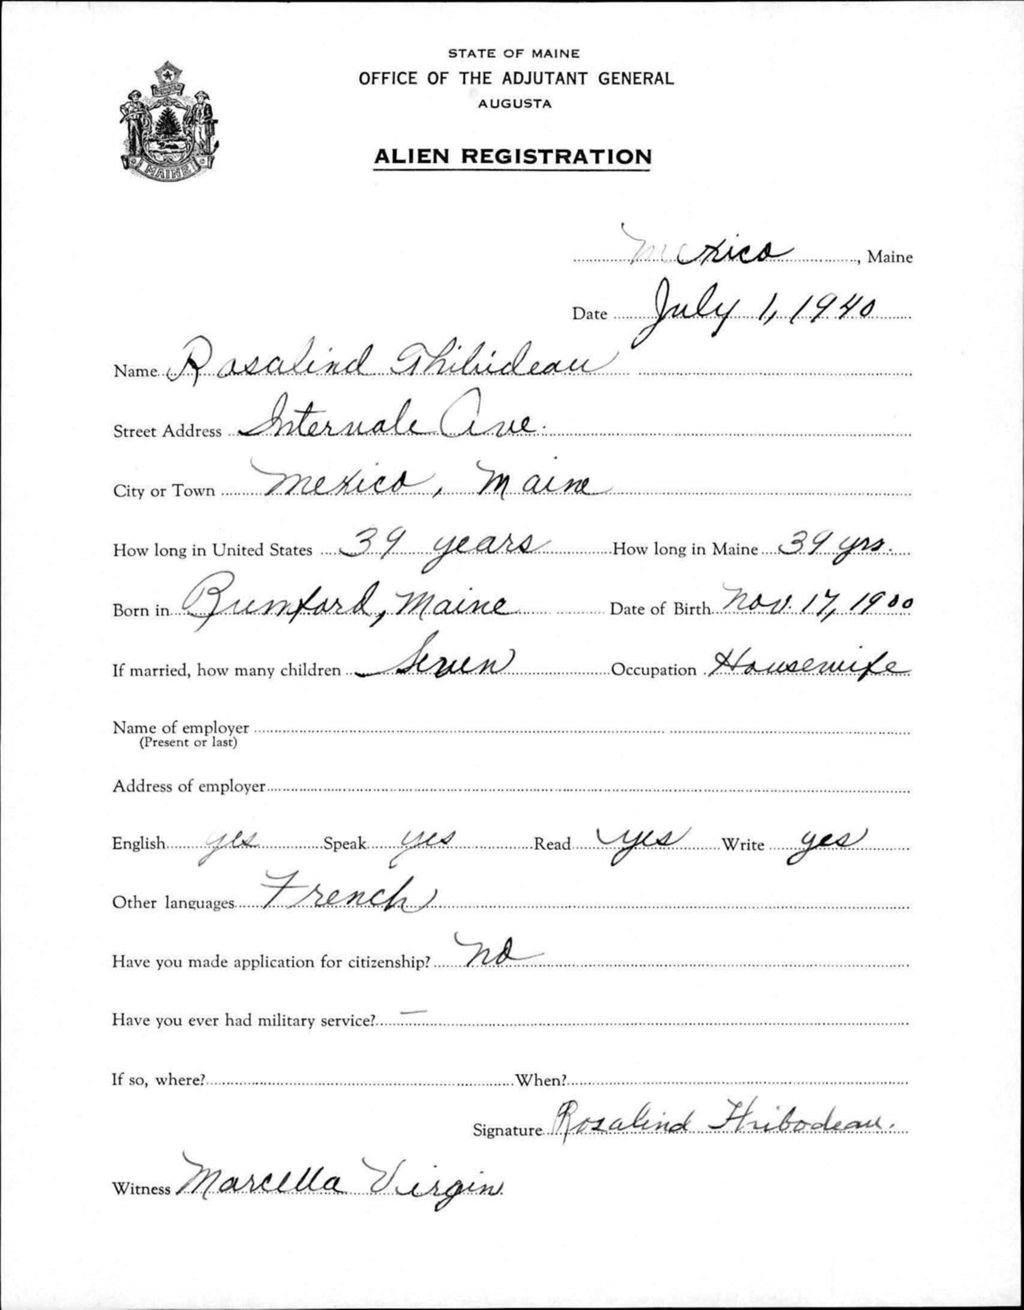 STATE OF MAINE
OFFICE OF THE ADJUTANT GENERAL
AUGUSTA
ALIEN REGISTRATION
MAINE
Mexico, Maine
Date July 1, 1940
Name Rosalind Thibideau
Street Address Intervale Ave.
City or Town Mexico, Maine
How long in United States 39 years How long in Maine 39 yrs.
Born in Rumford, Maine Date of Birth Nov. 17, 1900
If married, how many children Seven Occupation Housewife
Name of employer
(Present or last)
Address of employer
English yes Speak yes Read yes Write yes
Other languages French
Have you made application for citizenship? no
Have you ever had military service? —
If so, where? When?
Signature Rosalind Thibodeau.
Witness Marcella Virgin